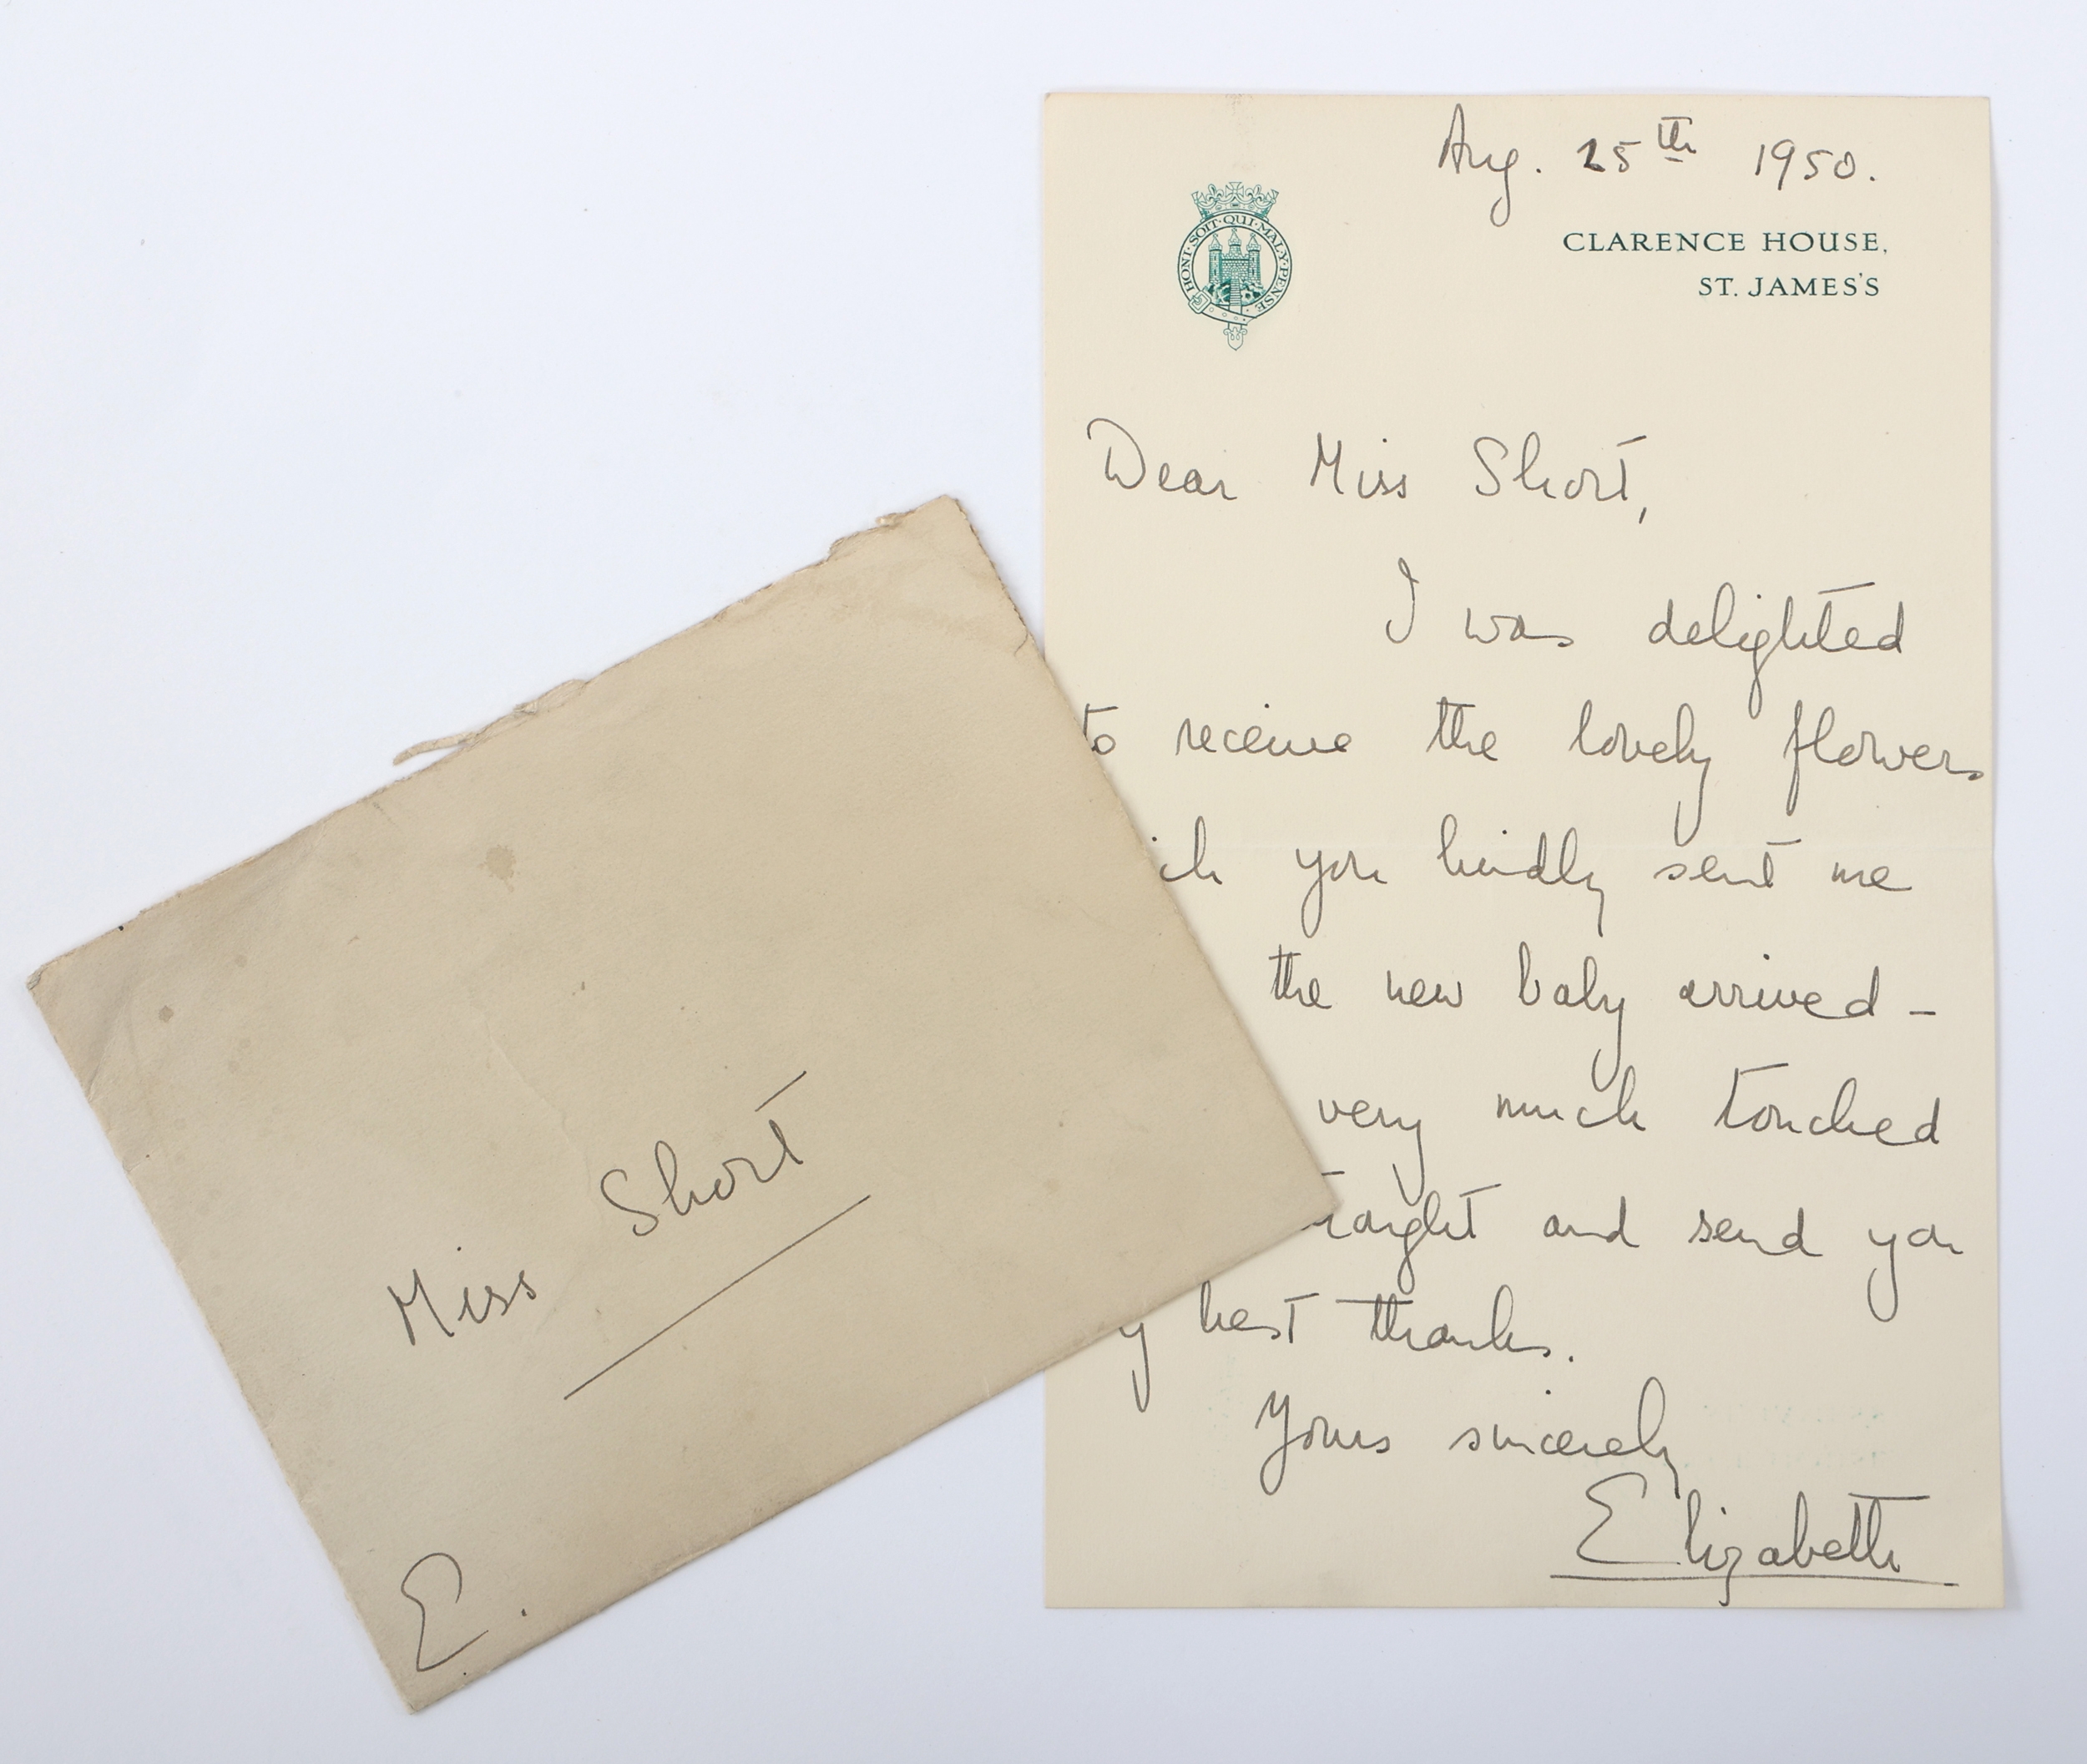 Aug. 25th 1950.
HONI·SOIT·QUI·MAL·Y·PENSE
CLARENCE HOUSE,
ST. JAMES'S
Dear Miss Short,
I was delighted
to receive the lovely flowers
you kindly sent me
the new baby arrived -
very much touched
and send you
best thanks.
Yours sincerely
Elizabeth
Miss Short
E.